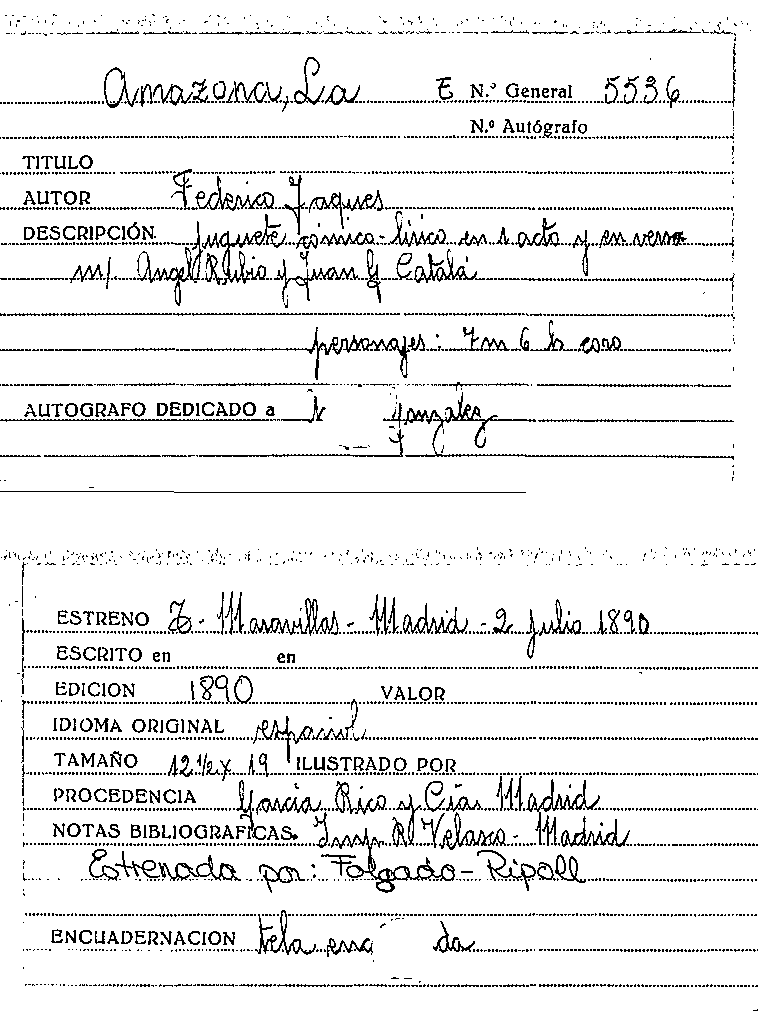 Amazona, La E N.º General 5536
N.º Autógrafo
TITULO
AUTOR Federico Jaques
DESCRIPCIÓN juguete cómico-lírico en 1 acto y en verso
m/. Angel Rubio y Juan G Catalá
personajes: 7m 6 h coro
AUTOGRAFO DEDICADO a Gonzalez
ESTRENO T- Maravillas - Madrid - 2 julio 1890
ESCRITO en en
EDICION 1890 VALOR
IDIOMA ORIGINAL español
TAMAÑO 12 1/2 x 19 ILUSTRADO POR
PROCEDENCIA García Rico y Cía. Madrid
NOTAS BIBLIOGRAFICAS. Imp. R Velasco - Madrid
Estrenada por: Folgado-Ripoll
ENCUADERNACION tela da